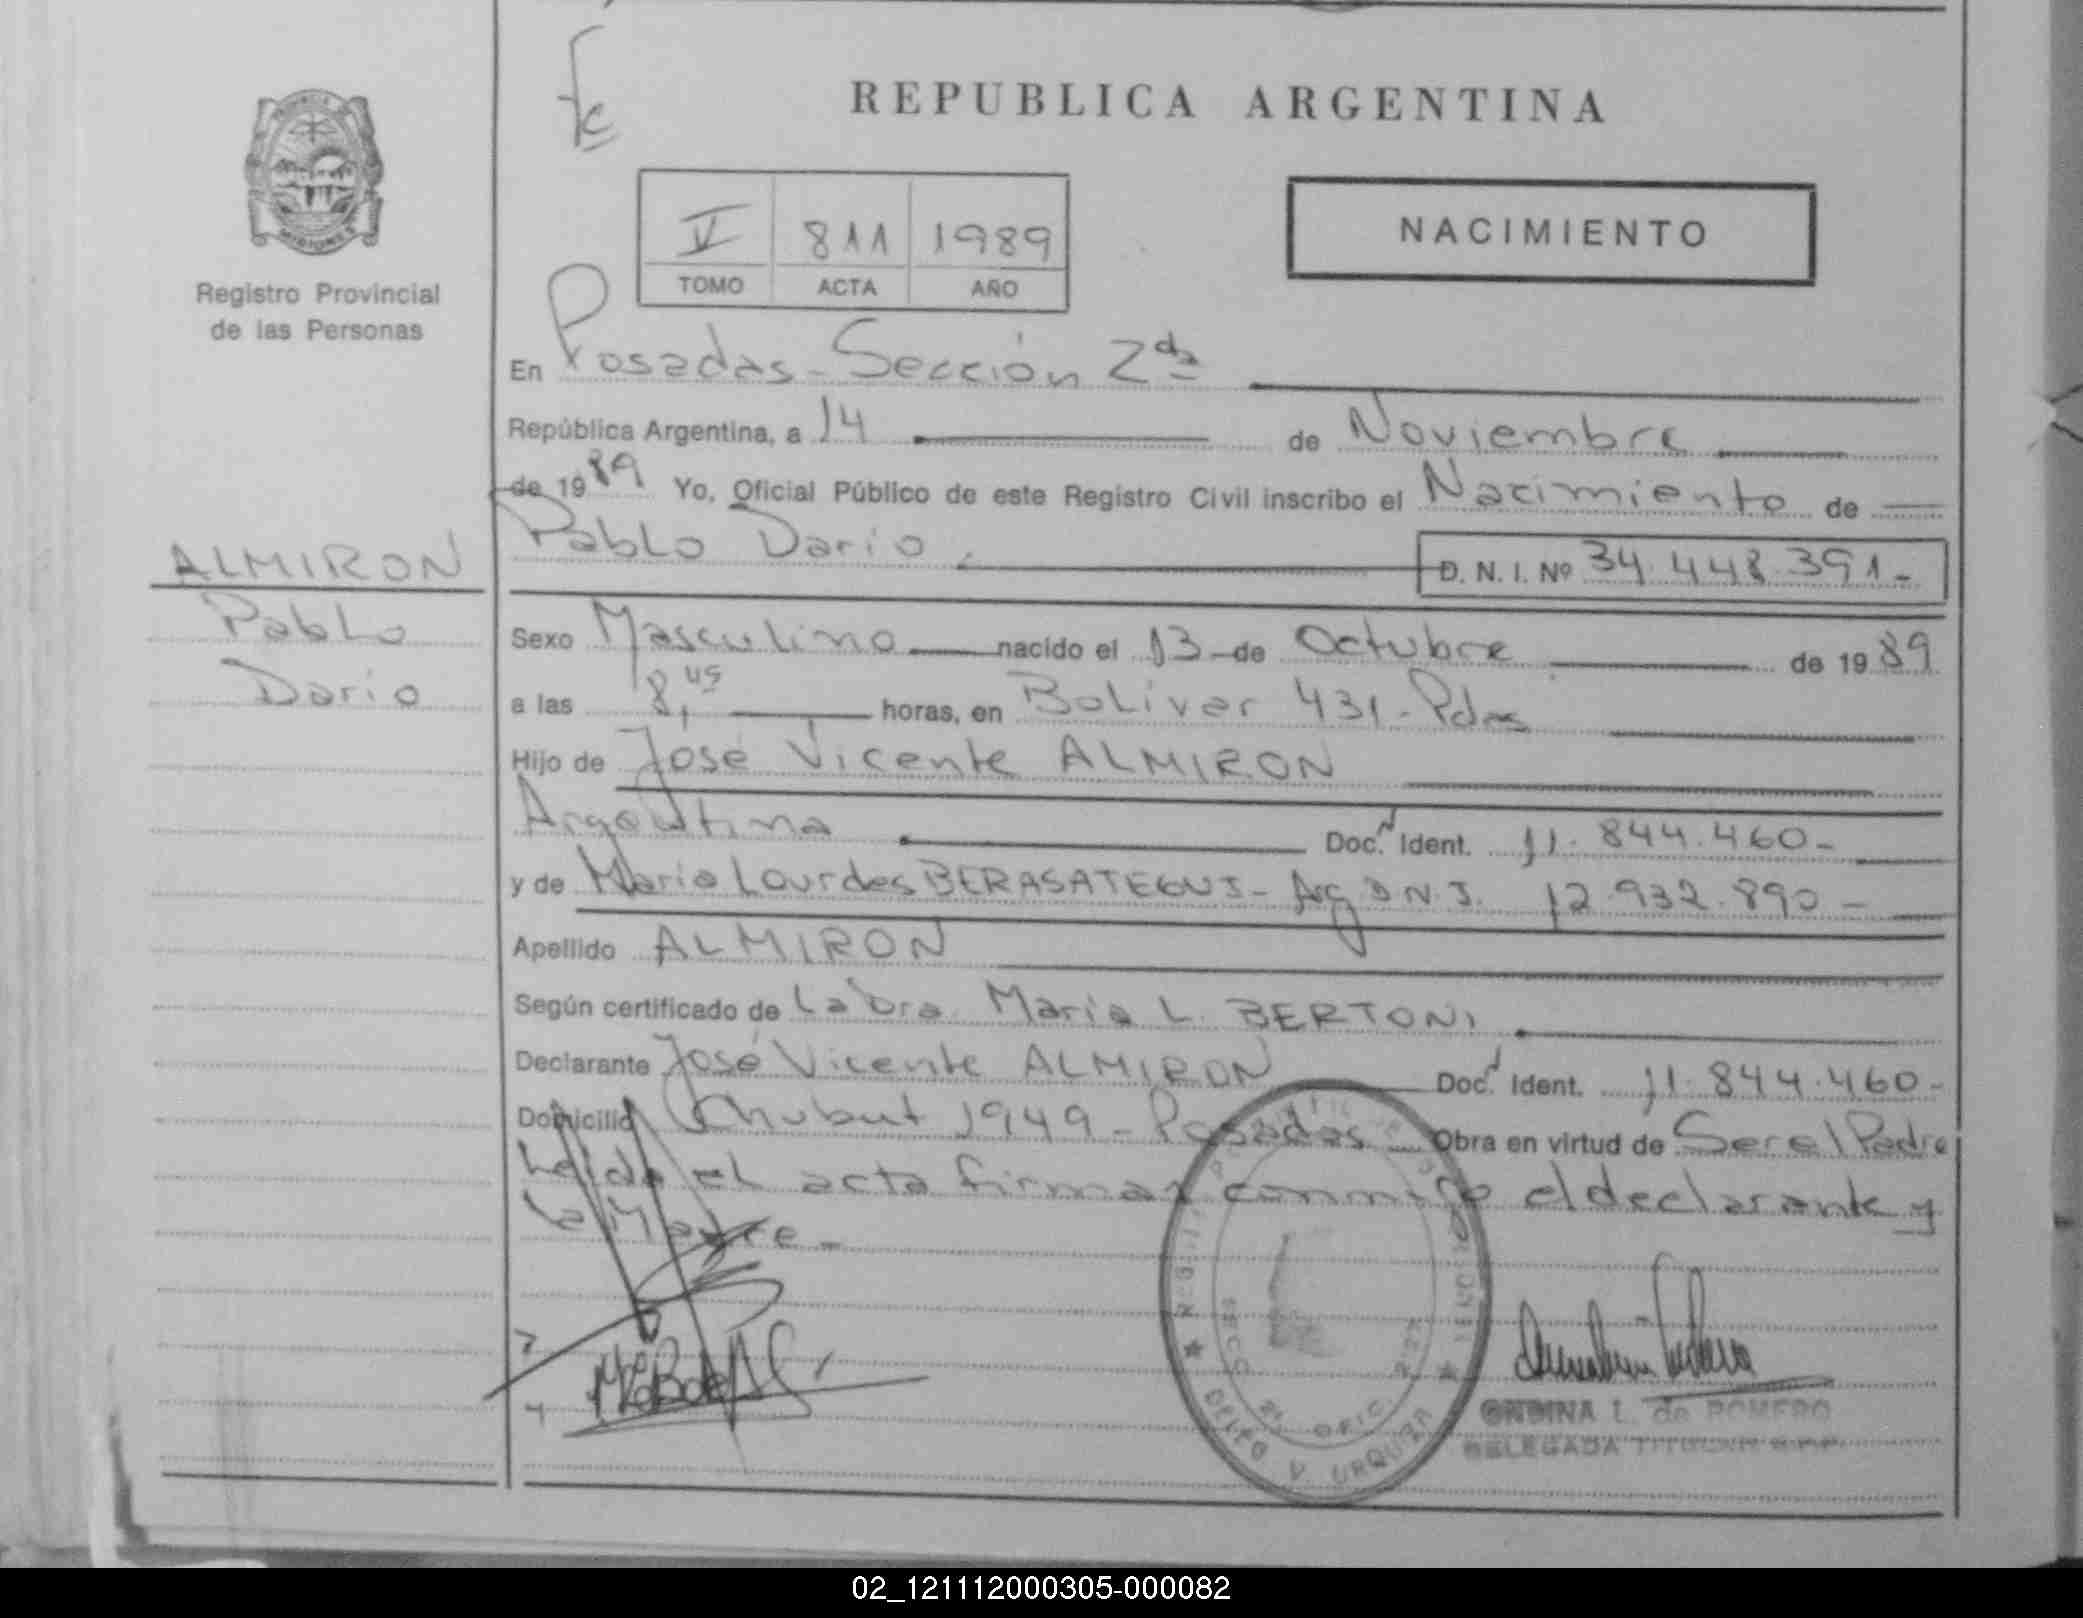 REPUBLICA ARGENTINA
MISIONES
Registro Provincial
de las Personas
V 811 1989
TOMO ACTA AÑO
NACIMIENTO
En Posadas - Sección 2da
República Argentina, a 14 de Noviembre
de 1989 Yo, Oficial Público de este Registro Civil inscribo el Nacimiento de
Pablo Dario D. N. I. Nº 34.448.391-
ALMIRON
Pablo
Dario
Sexo Masculino nacido el 13 de Octubre de 1989
a las 8,45 horas, en Bolivar 431 - Pdas
Hijo de José Vicente ALMIRON
Argentina Doc. Ident. 11.844.460-
y de Maria Lourdes BERASATEGUI - Arg D.N.I. 12.932.890 -
Apellido ALMIRON
Según certificado de La Dra. Maria L. BERTONI
Declarante José Vicente ALMIRON Doc. Ident. 11.844.460-
Domicilio Chubut 1949 - Posadas Obra en virtud de Ser el Padre
Leida el acta firman conmigo el declarante y
la Madre -
SECC. 2ª OFIC.
DELEG V. URQUIZA
ONDINA L. de ROMERO
DELEGADA TITULAR R.P.P.
02_121112000305-000082